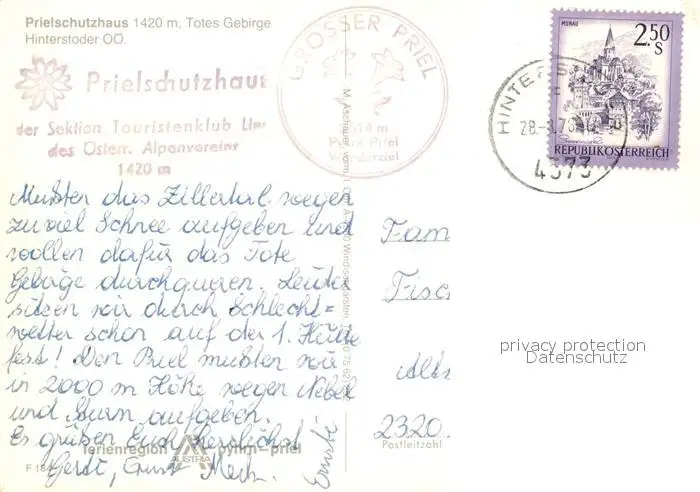 Prielschutzhaus 1420 m, Totes Gebirge
Hinterstoder OÖ.
Prielschutzhaus
der Sektion Touristenklub Linz
des Österr. Alpenvereins
1420 m
GROSSER PRIEL
2514 m
Pyhrn-Priel
Wanderziel
MURAU
2.50
S
REPUBLIK ÖSTERREICH
28.-8.78
4573
Mußten das Zillertal wegen
zu viel Schnee aufgeben und
wollen dafür das Tote
Gebirge durchqueren. Leider
sitzen wir durch Schlecht=
wetter schon auf der 1. Hütte
fest! Den Priel mußten wir
in 2000 m Höhe wegen Nebel
und Sturm aufgeben.
Es grüßen Euch herzlichst
Gerdi, Ernst
Fam
Fisc
2320
Postleitzahl
privacy protection
Datenschutz
ferienregion pyhrn-priel
AUSTRIA